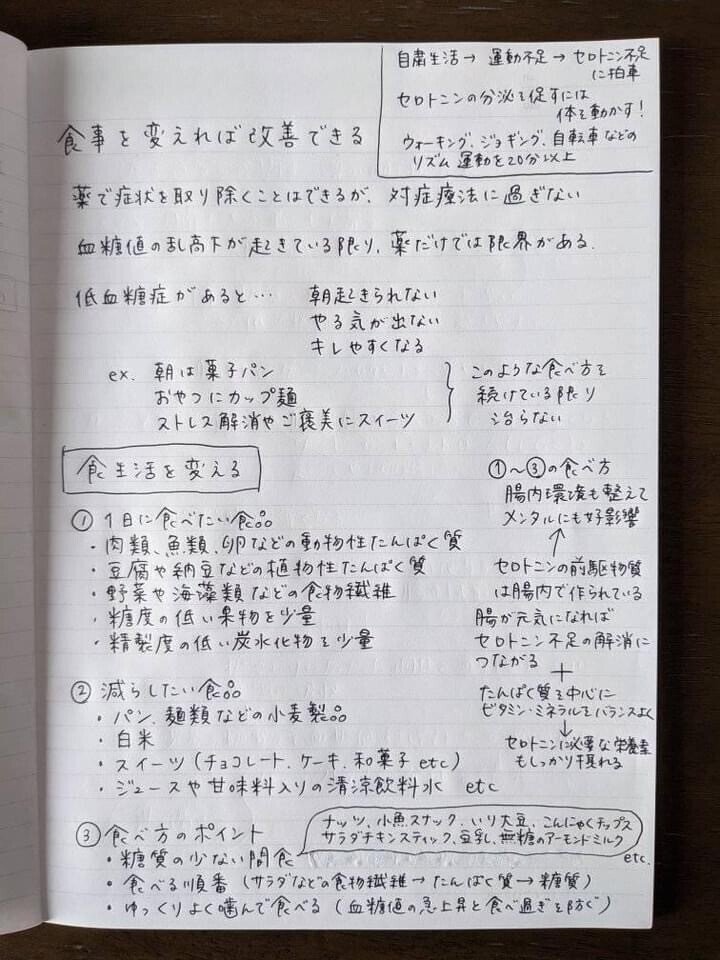 自粛生活→ 運動不足→セロトニン不足
に拍車
セロトニンの分泌を促すには
体を動かす!
ウォーキング、ジョギング、自転車などの
リズム運動を20分以上
食事を変えれば改善できる
薬で症状を取り除くことはできるが、対症療法に過ぎない
血糖値の乱高下が起きている限り、薬だけでは限界がある.
低血糖症があると… 朝起きられない
やる気が出ない
キレやすくなる
ex. 朝は菓子パン
おやつにカップ麺
ストレス解消やご褒美にスイーツ
このような食べ方を
続けている限り
治らない
食生活を変える
① 1日に食べたい食品
・肉類、魚類、卵などの動物性たんぱく質
・豆腐や納豆などの植物性たんぱく質
・野菜や海藻類などの食物繊維
・糖度の低い果物を少量
・精製度の低い炭水化物を少量
② 減らしたい食品
・パン、麺類などの小麦製品
・白米
・スイーツ(チョコレート、ケーキ、和菓子 etc)
・ジュースや甘味料入りの清涼飲料水 etc
①〜③の食べ方
腸内環境も整えて
メンタルにも好影響
↑
セロトニンの前駆物質
は腸内で作られている
腸が元気になれば
セロトニン不足の解消に
つながる
+
たんぱく質を中心に
ビタミン・ミネラルをバランスよく
↓
セロトニンに必要な栄養素
もしっかり摂れる
③ 食べ方のポイント
・糖質の少ない間食
ナッツ、小魚スナック、いり大豆、こんにゃくチップス
サラダチキンスティック、豆乳、無糖のアーモンドミルク
etc.
・食べる順番(サラダなどの食物繊維→たんぱく質→糖質)
・ゆっくりよく噛んで食べる(血糖値の急上昇と食べ過ぎを防ぐ)